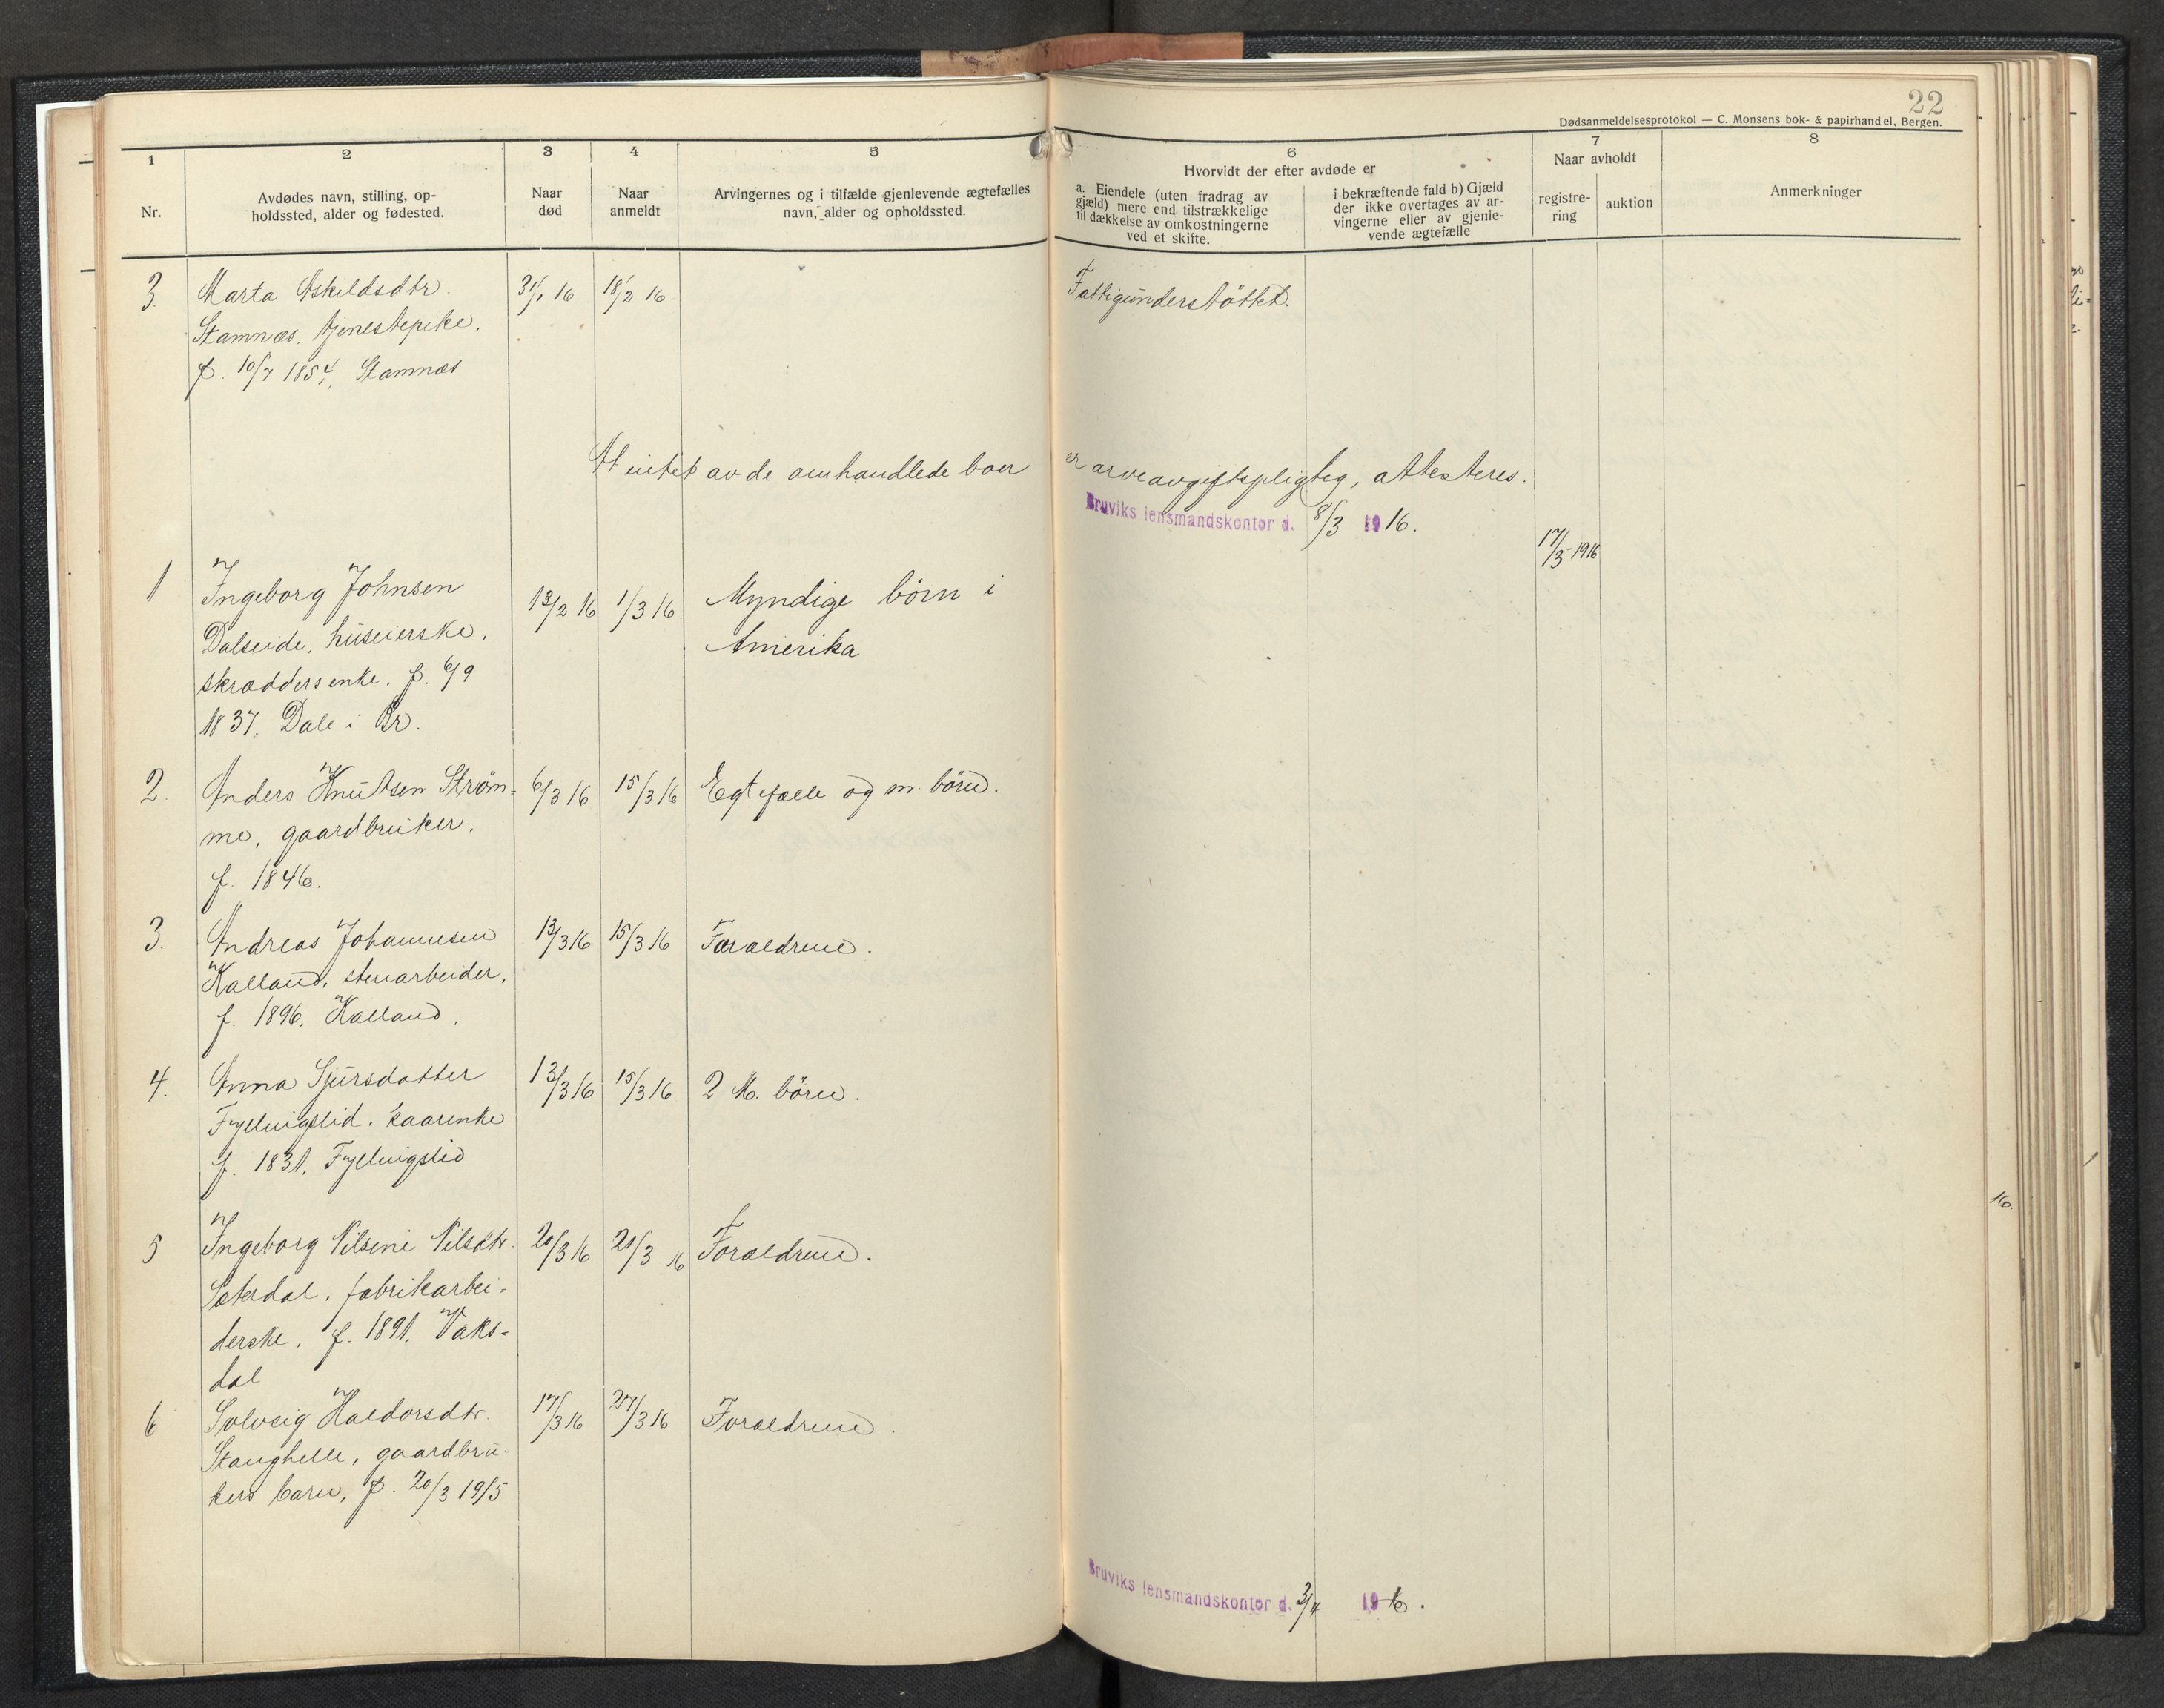 22
Dødsanmeldelsesprotokol — C. Monsens bok- & papirhandel, Bergen.
1
Nr.
2
Avdødes navn, stilling, op-
holdssted, alder og fødested.
3
Naar
død
4
Naar
anmeldt
5
Arvingernes og i tilfælde gjenlevende ægtefælles
navn, alder og opholdssted.
6
Hvorvidt der efter avdøde er
a. Eiendele (uten fradrag av
gjæld) mere end tilstrækkelige
til dækkelse av omkostningerne
ved et skifte.
i bekræftende fald b) Gjæld
der ikke overtages av ar-
vingerne eller av gjenle-
vende ægtefælle
7
Naar avholdt
registre-
ring
auktion
8
Anmerkninger
3. Marta Askildsdtr. 31/1 16 18/2 16. Fattigunderstöttet.
Stamnæs, tjenestepike.
f. 10/7 1854, Stamnæs
At intet av de omhandlede boer er arveavgiftspligtig, attesteres.
Bruviks lensmandskontor d. 8/3 1916.
17/3-1916
1 Ingeborg Johnsen 13/2 16 1/3 16. Myndige börn i
Dalseide, huseierske, Amerika
skræddersenke. f. 6/9
1837, Dale i Br.
2. Anders Knutsen Strøm- 6/3 16 15/3 16 Egtefælle og m. börn.
me, gaardbruker.
f. 1846.
3. Andreas Johannesen 13/3 16 15/3 16 Forældrene.
Kalland, stenarbeider,
f. 1896, Kalland.
4. Anna Sjursdatter 13/3 16 15/3 16 2 M. börn.
Fyllingslid. kaarenke
f. 1831, Fyllingslid
5 Ingeborg Nilsine Nilsdtr. 20/3 16 21/3 16 Forældrene.
Sæterdal, fabrikarbei-
derske. f. 1891, Vaks-
dal
6 Solveig Haldorsdtr. 17/3 16 27/3 16 Forældrene.
Stanghelle, gaardbru-
kers barn, f. 20/3 1915
Bruviks lensmandskontor d. 3/4 1916.
16.